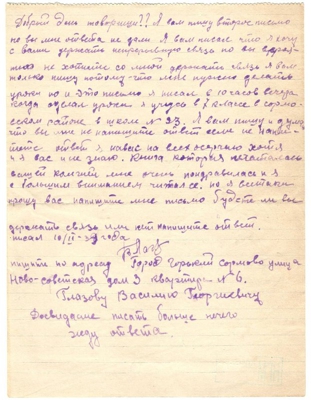 Добрый день товорищи?? Я вам пишу второе письмо
но вы мне ответа не дали. Я вам писал что я хочу
с вами держать непрерывную связь но вы
не хотите со мной держать связь я вам
только пишу потому что мне нужно делать
уроки но и это письмо я писал в 10 часов вечера
когда сделал уроки я учусь в 7 классе в сормо-
вском районе в школе № 23. Я вам пишу и думаю
что вы мне не напишите ответ если не
ответ я на всех хотя
я вас и не знаю. Книга которая печаталась
вашей мне очень понравилась и я
с большим вниманием читал её. но я всетаки
прошу вас напишите мне письмо будете ли вы
держать связь или нет напишите ответ.
писал 10/II-37 года
пишите по адресу город Горький Сормово улица
Ново-советская дом 3 квартира № 6.
Глазову Василию Георгиевичу
Досвидание писать больше нечего
жду ответа.